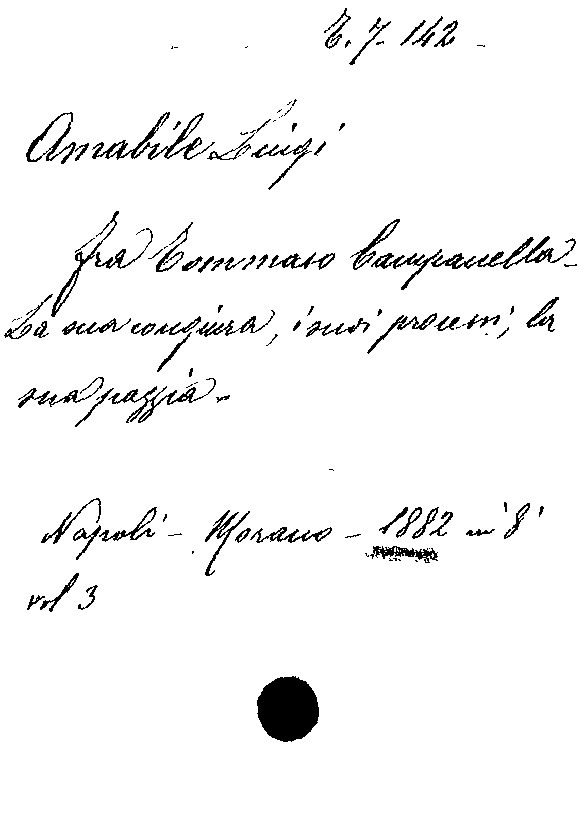 E. 7. 142
Amabile Luigi
Fra Tommaso Campanella -
La sua congiura, i suoi processi, la
sua pazzia.
Napoli - Morano - 1882 in 8°
vol 3